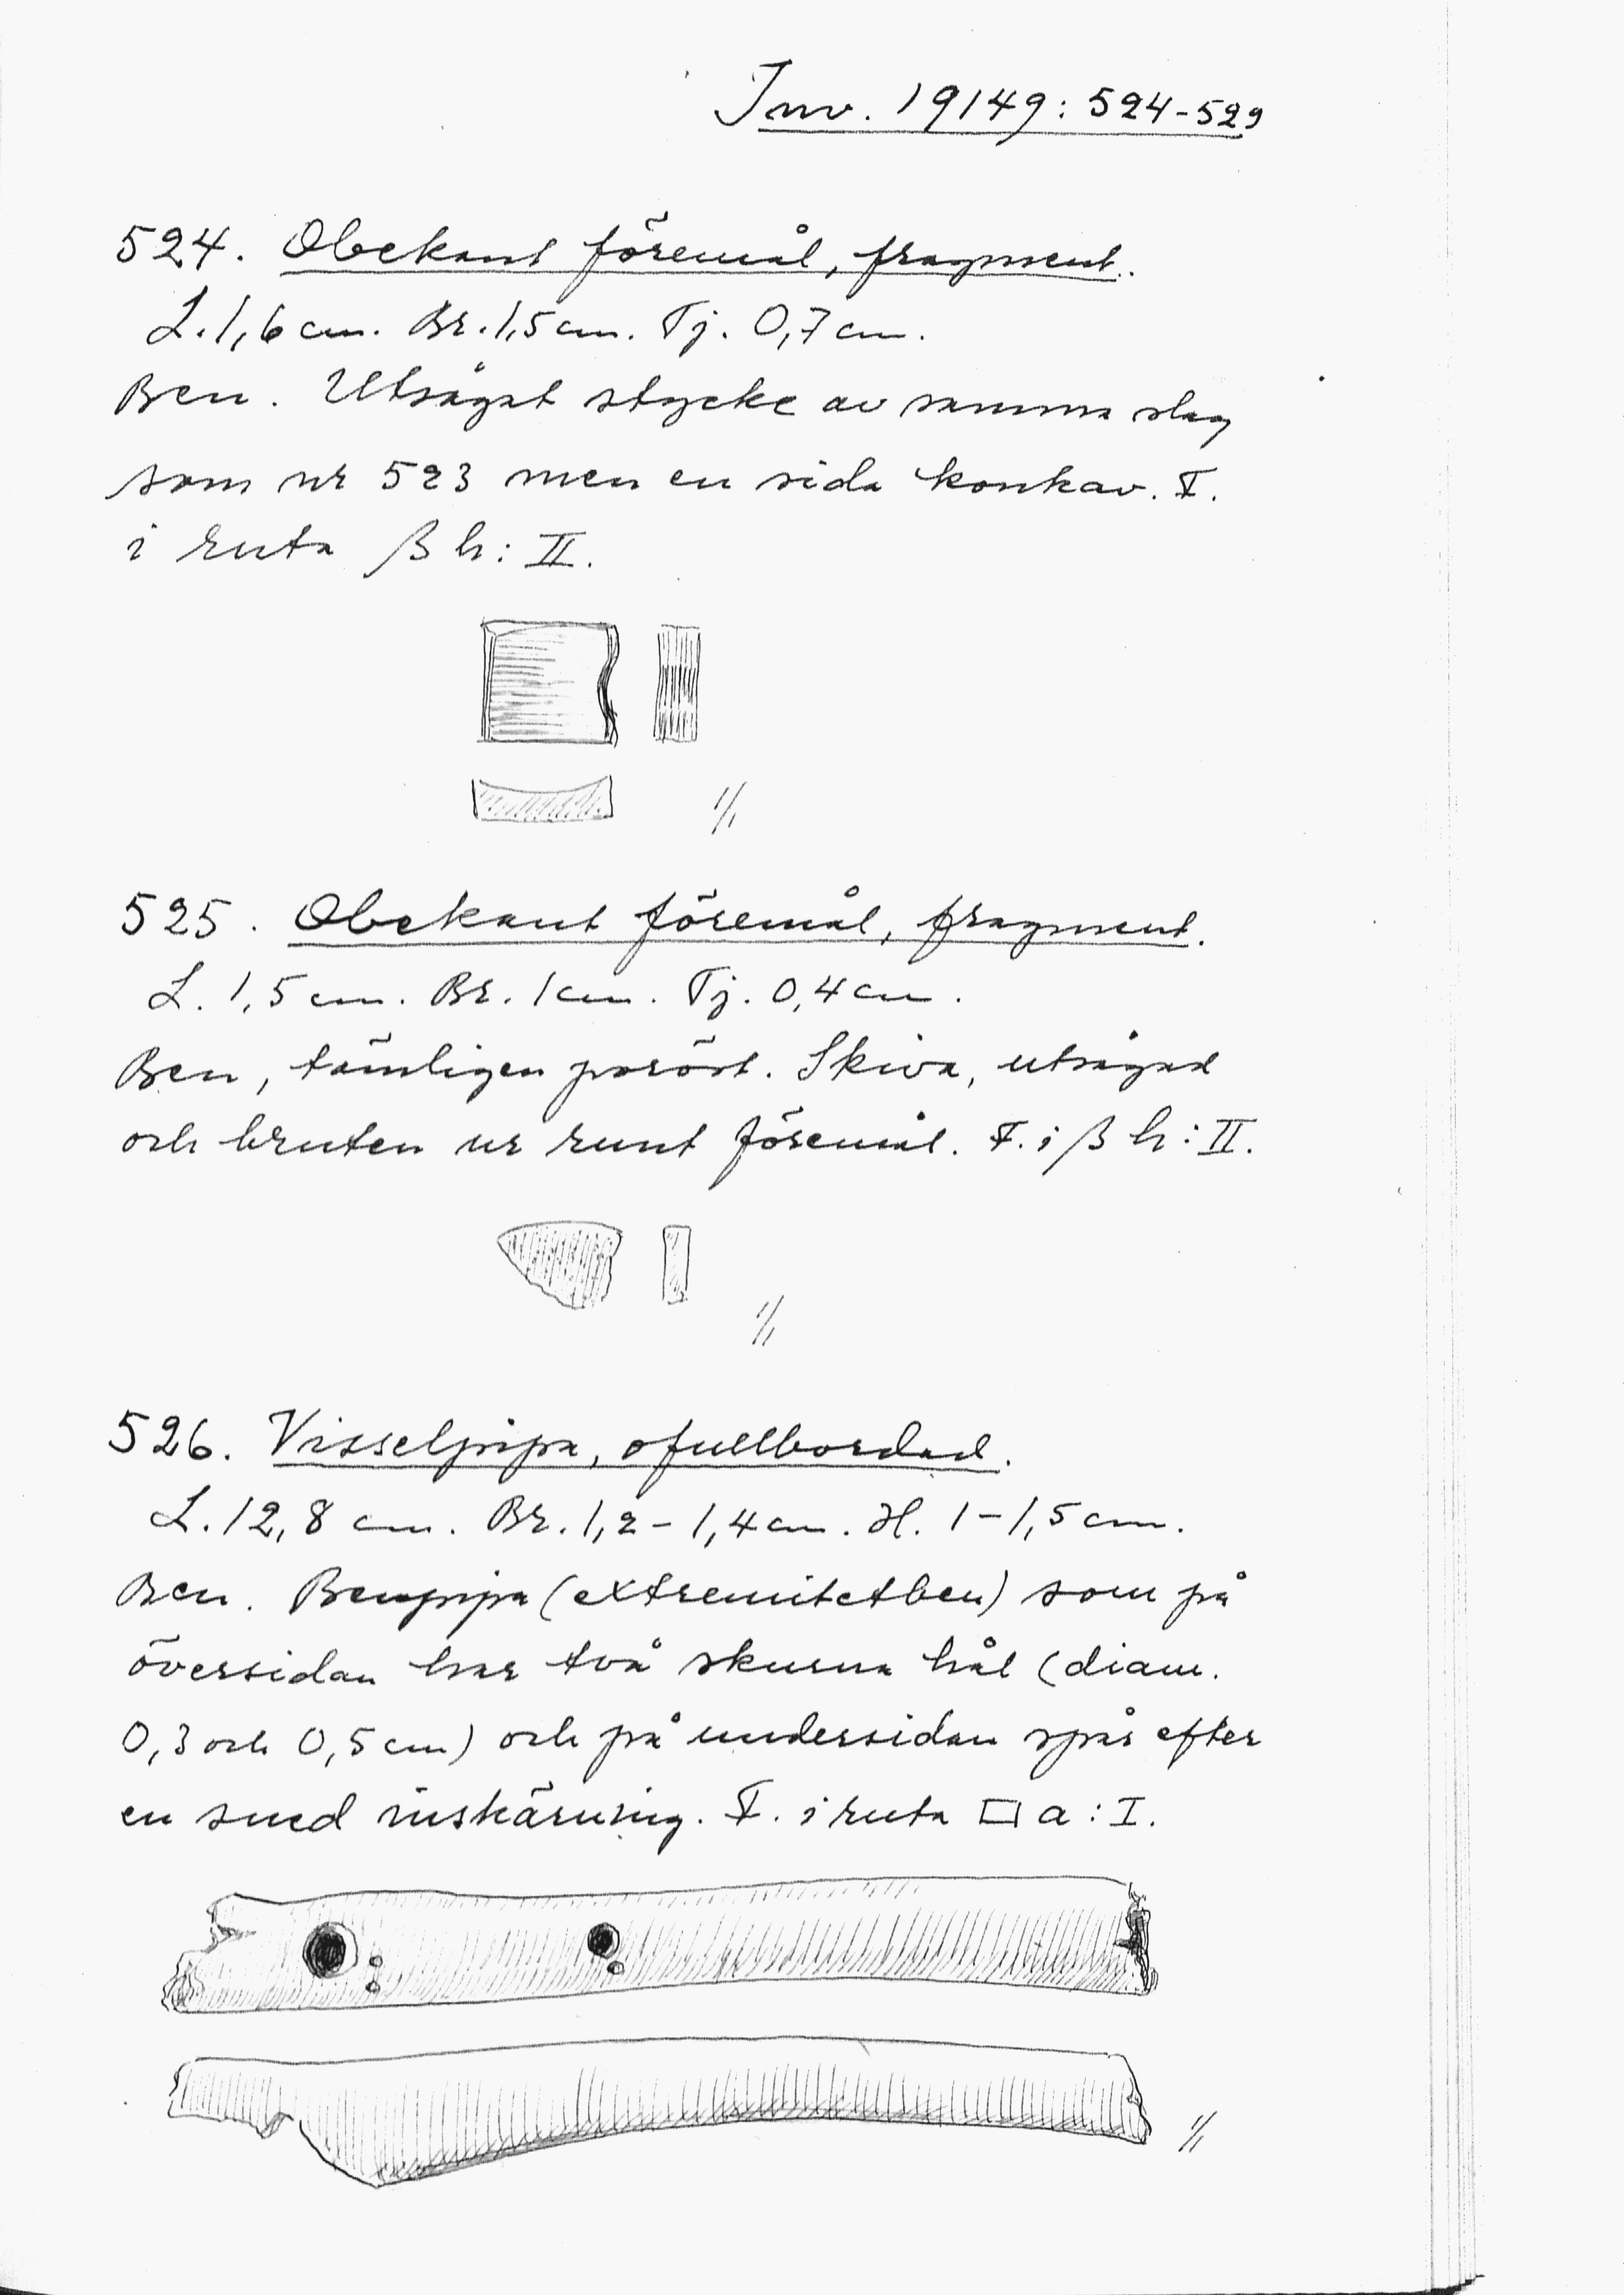 Inv. 19149: 524-529
524. Obekant föremål, fragment.
L. 1,6 cm. Br. 1,5 cm. Tj. 0,7 cm.
Ben. Utsågat stycke av samma slag
som nr 523 men en sida konkav. F.
i ruta β h: II.
1/1
525. Obekant föremål, fragment.
L. 1,5 cm. Br. 1 cm. Tj. 0,4 cm.
Ben, tämligen poröst. Skiva, utsågad
och bruten ur runt föremål. F. i β h: II.
1/1
526. Visselpipa, ofullbordad.
L. 12,8 cm. Br. 1,2-1,4 cm. H. 1-1,5 cm.
Ben. Benpipa (extremitetben) som på
översidan har två skurna hål (diam.
0,3 och 0,5 cm) och på undersidan spår efter
en sned inskärning. F. i ruta □ a: I.
1/1